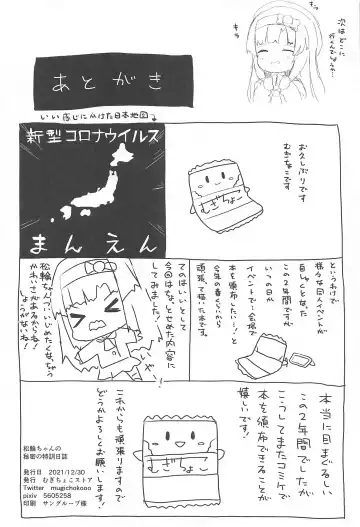 次はどこに
行くんでしょうか…
あとがき
いい感じにかけた日本地図↓
新型コロナウイルス
まんえん
お久しぶりです
むぎちょこです
むぎちょこ
というわけで
様々な同人イベントが
自粛となった
この2年間ですが
いつの日か
イベントで…会場で
本を頒布したい…!と
今年の春くらいから
頑張って描いた本です。
てのはいいとして
今回はちょっとせめた内容に
してみました!
松輪ちゃんついいじめたくなっちゃう
かわいさがあるからね!
しょうがないね!
本当に目まぐるしい
この2年間でしたが
こうしてまたコミケで
本を頒布できることが
嬉しいです!
これからも頑張りますので
どうかよろしくお願いします!
むぎちょこ
松輪ちゃんの
秘密の特訓日誌
発行日 2021/12/30
発行 むぎちょこストア
Twitter mugichokooo
pixiv 5605258
印刷 サングループ様